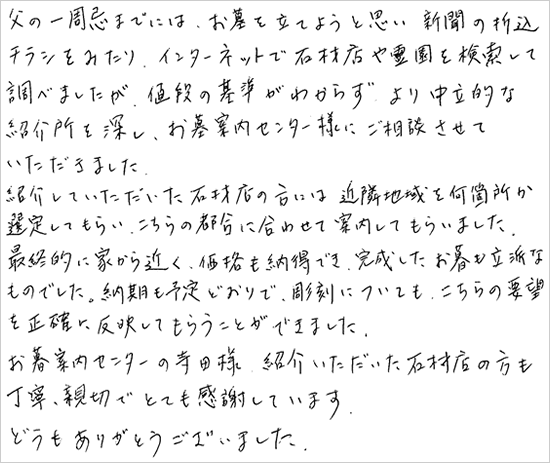 父の一周忌までには、お墓を立てようと思い 新聞の折込
チラシをみたり、インターネットで石材店や霊園を検索して
調べましたが、値段の基準がわからず より中立的な
紹介所を探し、お墓案内センター様にご相談させて
いただきました。
紹介していただいた石材店の方には 近隣地域を何箇所か
選定してもらい、こちらの都合に合わせて案内してもらいました。
最終的に家から近く、価格も納得でき、完成したお墓も立派な
ものでした。納期も予定どおりで、彫刻についても、こちらの要望
を正確に反映してもらうことができました。
お墓案内センターの寺田様、紹介いただいた石材店の方も
丁寧、親切でとても感謝しています。
どうもありがとうございました。